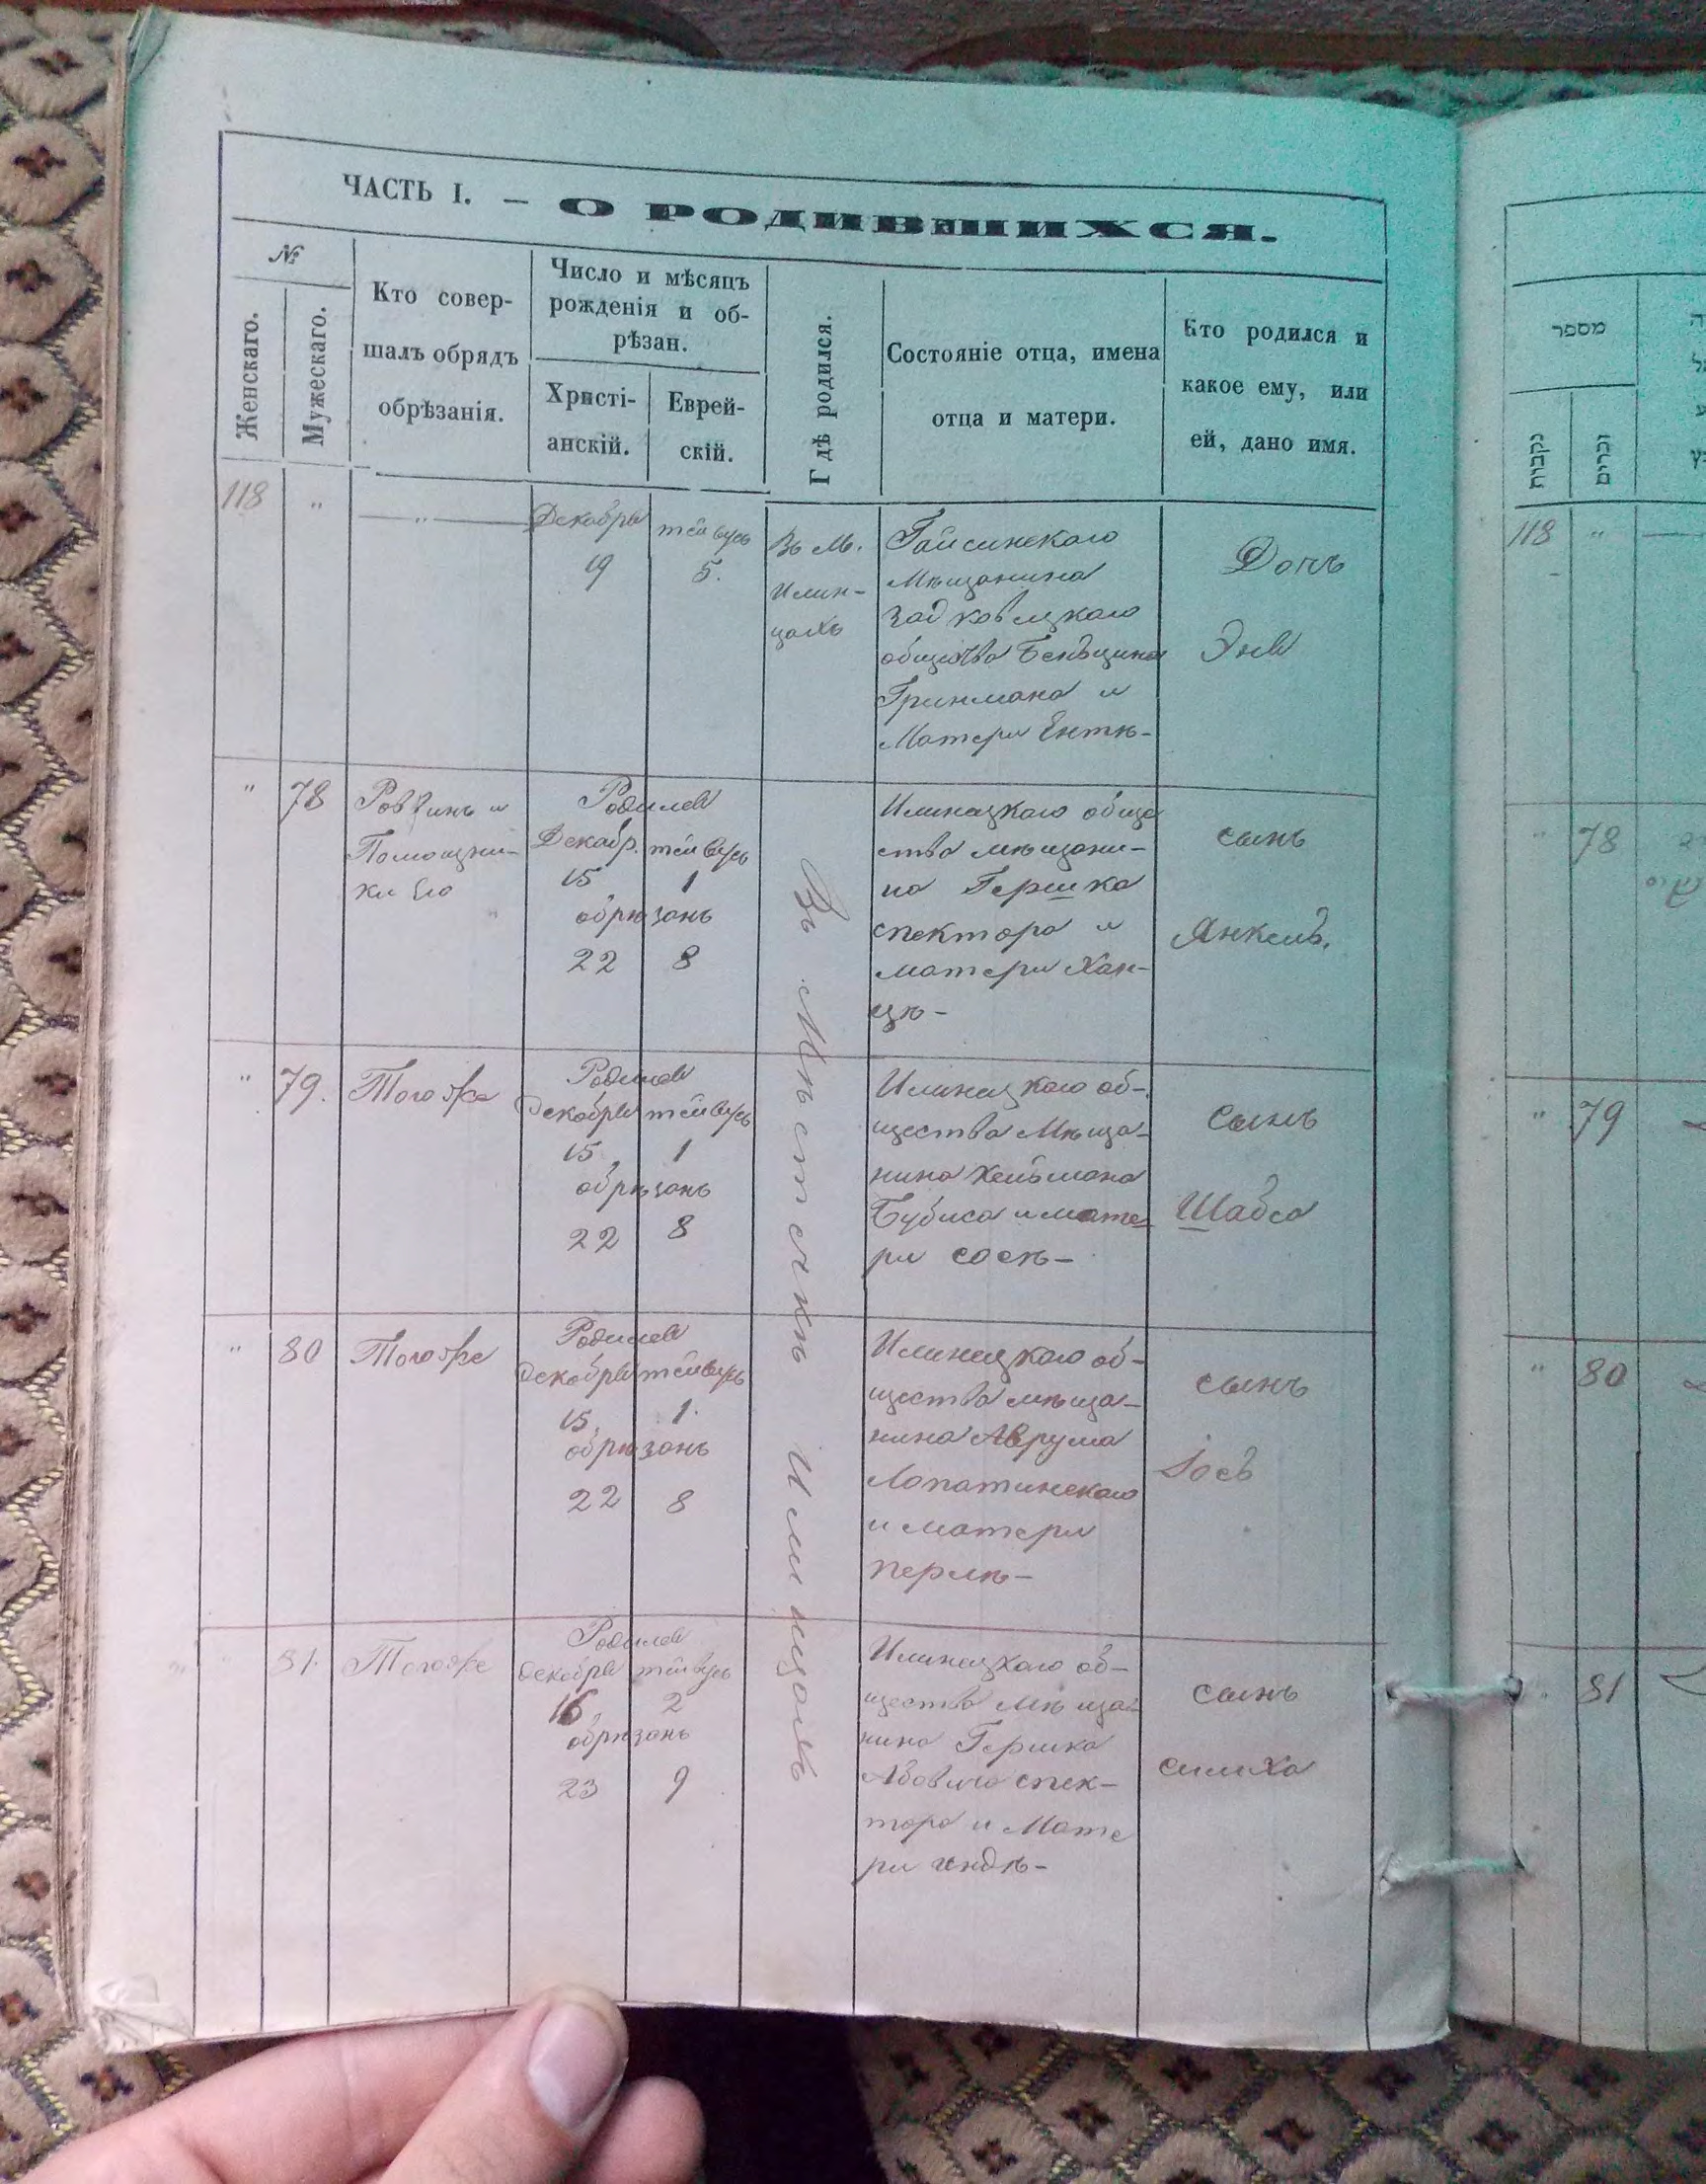 ЧАСТЬ I. — О РОДИВШИХСЯ.
№
Женскаго.
Мужескаго.
Кто совер-
шалъ обрядъ
обрѣзанія.
Число и мѣсяцъ
рожденія и об-
рѣзан.
Христі-
анскій.
Еврей-
скій.
Гдѣ родился.
Состояніе отца, имена
отца и матери.
Кто родился и
какое ему, или
ей, дано имя.
118 " — " —
Декабря
19
тейвусь
5.
Въ м.
Илин-
цахъ
Гайсинскаго
Мѣщанина
общества
Гринмана и
Матери Ентѣ-
Дочь
Эня
" 78
Раввинъ и
Помощни-
ки его
Родился
Декабр. тейвусь
15 1
обрѣзанъ
22 8
Въ Мѣстечкѣ Илинцахъ
Илинецкаго обще
ства мѣщани-
на Гершка
спектора и
матери Хан-
цѣ-
сынъ
Янкель.
" 79.
Тогоже
Родился
Декабря тейвусь
15 1
обрѣзанъ
22 8
Илинецкаго об-
щества Мѣща-
нина Хеймана
Бубиса и мате-
ри сосѣ-
сынъ
Шабса
" 80
Тогоже
Родился
Декабря тейвусь
15 1.
обрѣзанъ
22 8
Илинецкаго об-
щества мѣща-
нина Аврума
Лопатинскаго
и матери
перлѣ-
сынъ
Iось
" 81.
Тогоже
Родился
Декабря тейвусь
16 2
обрѣзанъ
23 9
Илинецкаго об-
щества мѣща-
нина Гершка
Абовича спек-
тора и Мате
ри
сынъ
симха
מספר
נקבות
זכרים
118 "
" 78
" 79
" 80
" 81